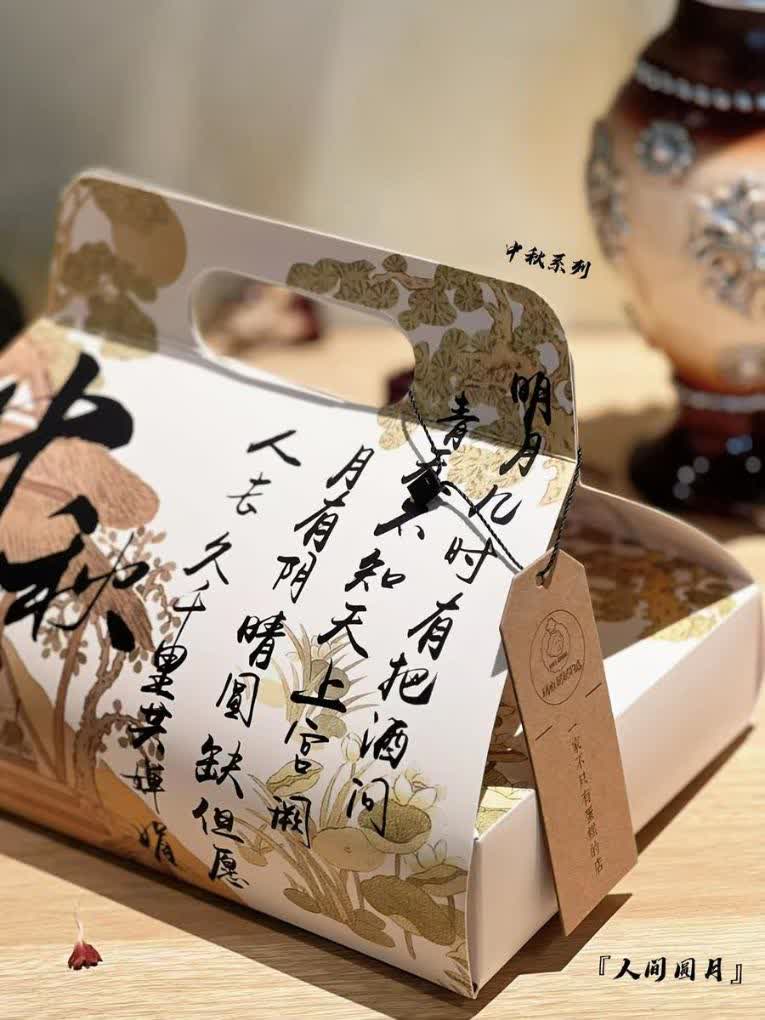 中秋系列
明月几时有把酒问
青春不知天上宫阙
月有阴晴圆缺但愿
人去久千里共婵娟
中秋
一家不只有蛋糕的店
『人间圆月』